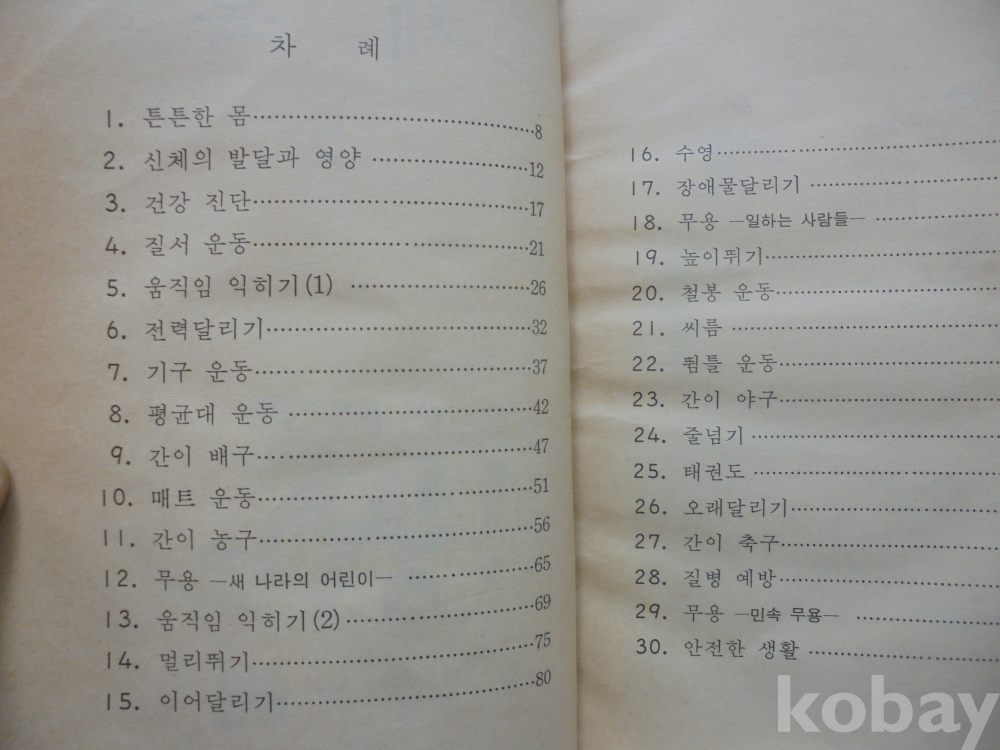 차 례
1. 튼튼한 몸 8
2. 신체의 발달과 영양 12
3. 건강 진단 17
4. 질서 운동 21
5. 움직임 익히기(1) 26
6. 전력달리기 32
7. 기구 운동 37
8. 평균대 운동 42
9. 간이 배구 47
10. 매트 운동 51
11. 간이 농구 56
12. 무용 —새 나라의 어린이— 65
13. 움직임 익히기(2) 69
14. 멀리뛰기 75
15. 이어달리기 80
16. 수영
17. 장애물달리기
18. 무용 —일하는 사람들—
19. 높이뛰기
20. 철봉 운동
21. 씨름
22. 뜀틀 운동
23. 간이 야구
24. 줄넘기
25. 태권도
26. 오래달리기
27. 간이 축구
28. 질병 예방
29. 무용 —민속 무용—
30. 안전한 생활
kobay